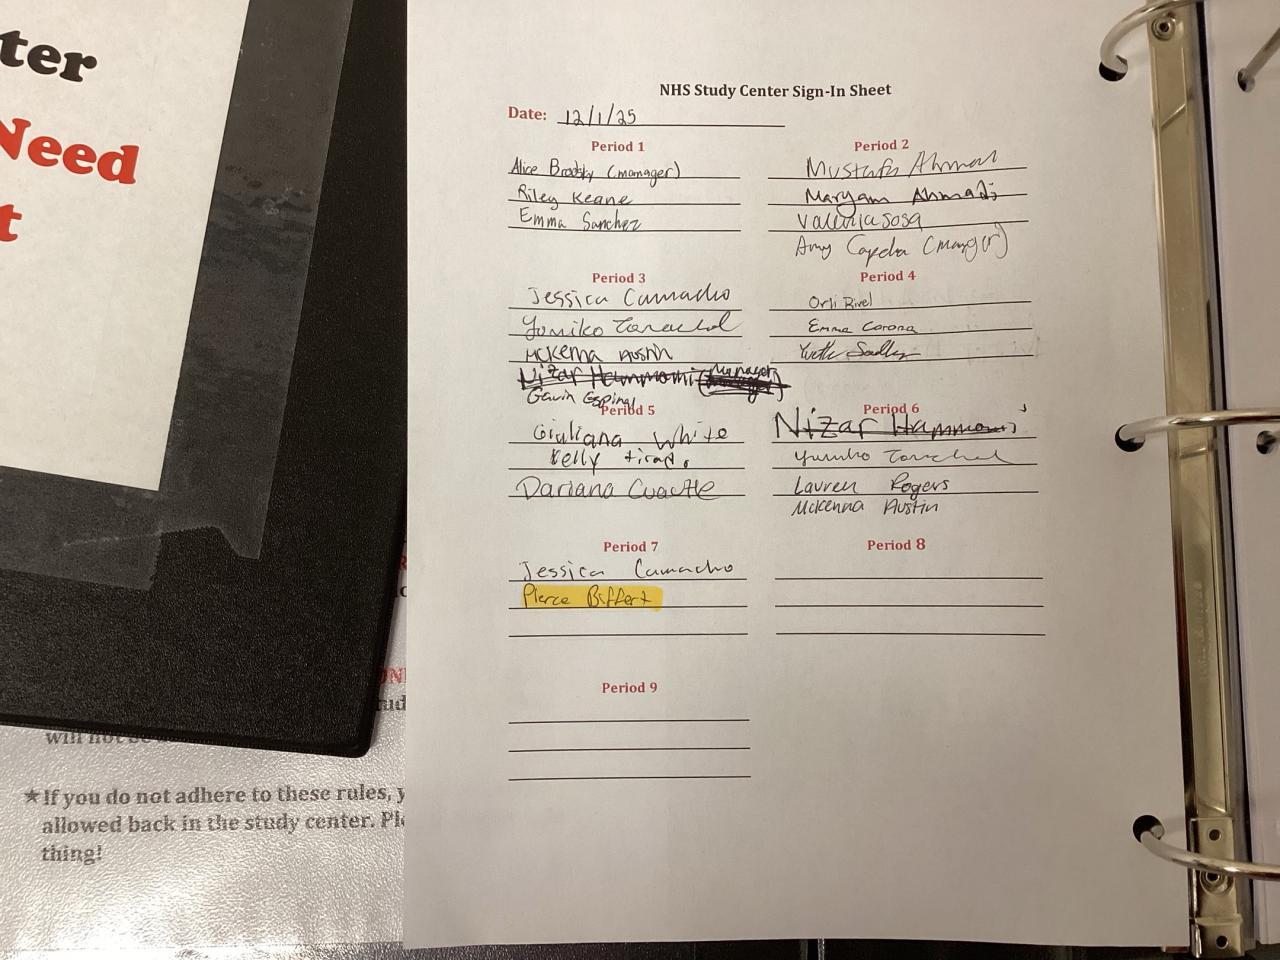 ter
Need
t
NHS Study Center Sign-In Sheet
Date: 12/1/25
Period 1
Alice Brodsky (manager)
Riley Keane
Emma Sanchez
Period 2
Mustafa Ahmad
Maryam Ahmadi
Valeria Sosa
Amy
Period 3
Jessica Camacho
Yumiko
McKenna Austin
Nizar Hammomi (Manager)
Gavin Espinal
Period 4
Orli Rivel
Emma Corona
Yvette
Period 5
Giuliana White
Kelly tirado
Dariana Cuactle
Period 6
Nizar Hammomi
Yumiko
Lauren Rogers
McKenna Austin
Period 7
Jessica Camacho
Pierce Biffert
Period 8
Period 9
will not be
★If you do not adhere to these rules, y
allowed back in the study center. Ple
thing!